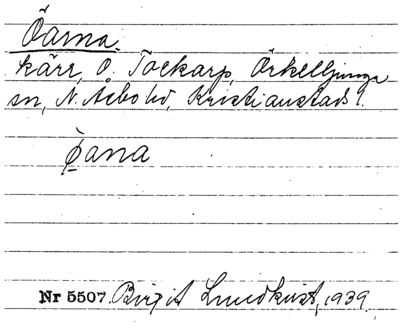 Öarna.
kärr, Ö. Tockarp, Örkelljunga
sn, N. Åsbo hd, Kristianstads l.
o̱ana
Nr 5507. Birgit Lundkvist, 1939.